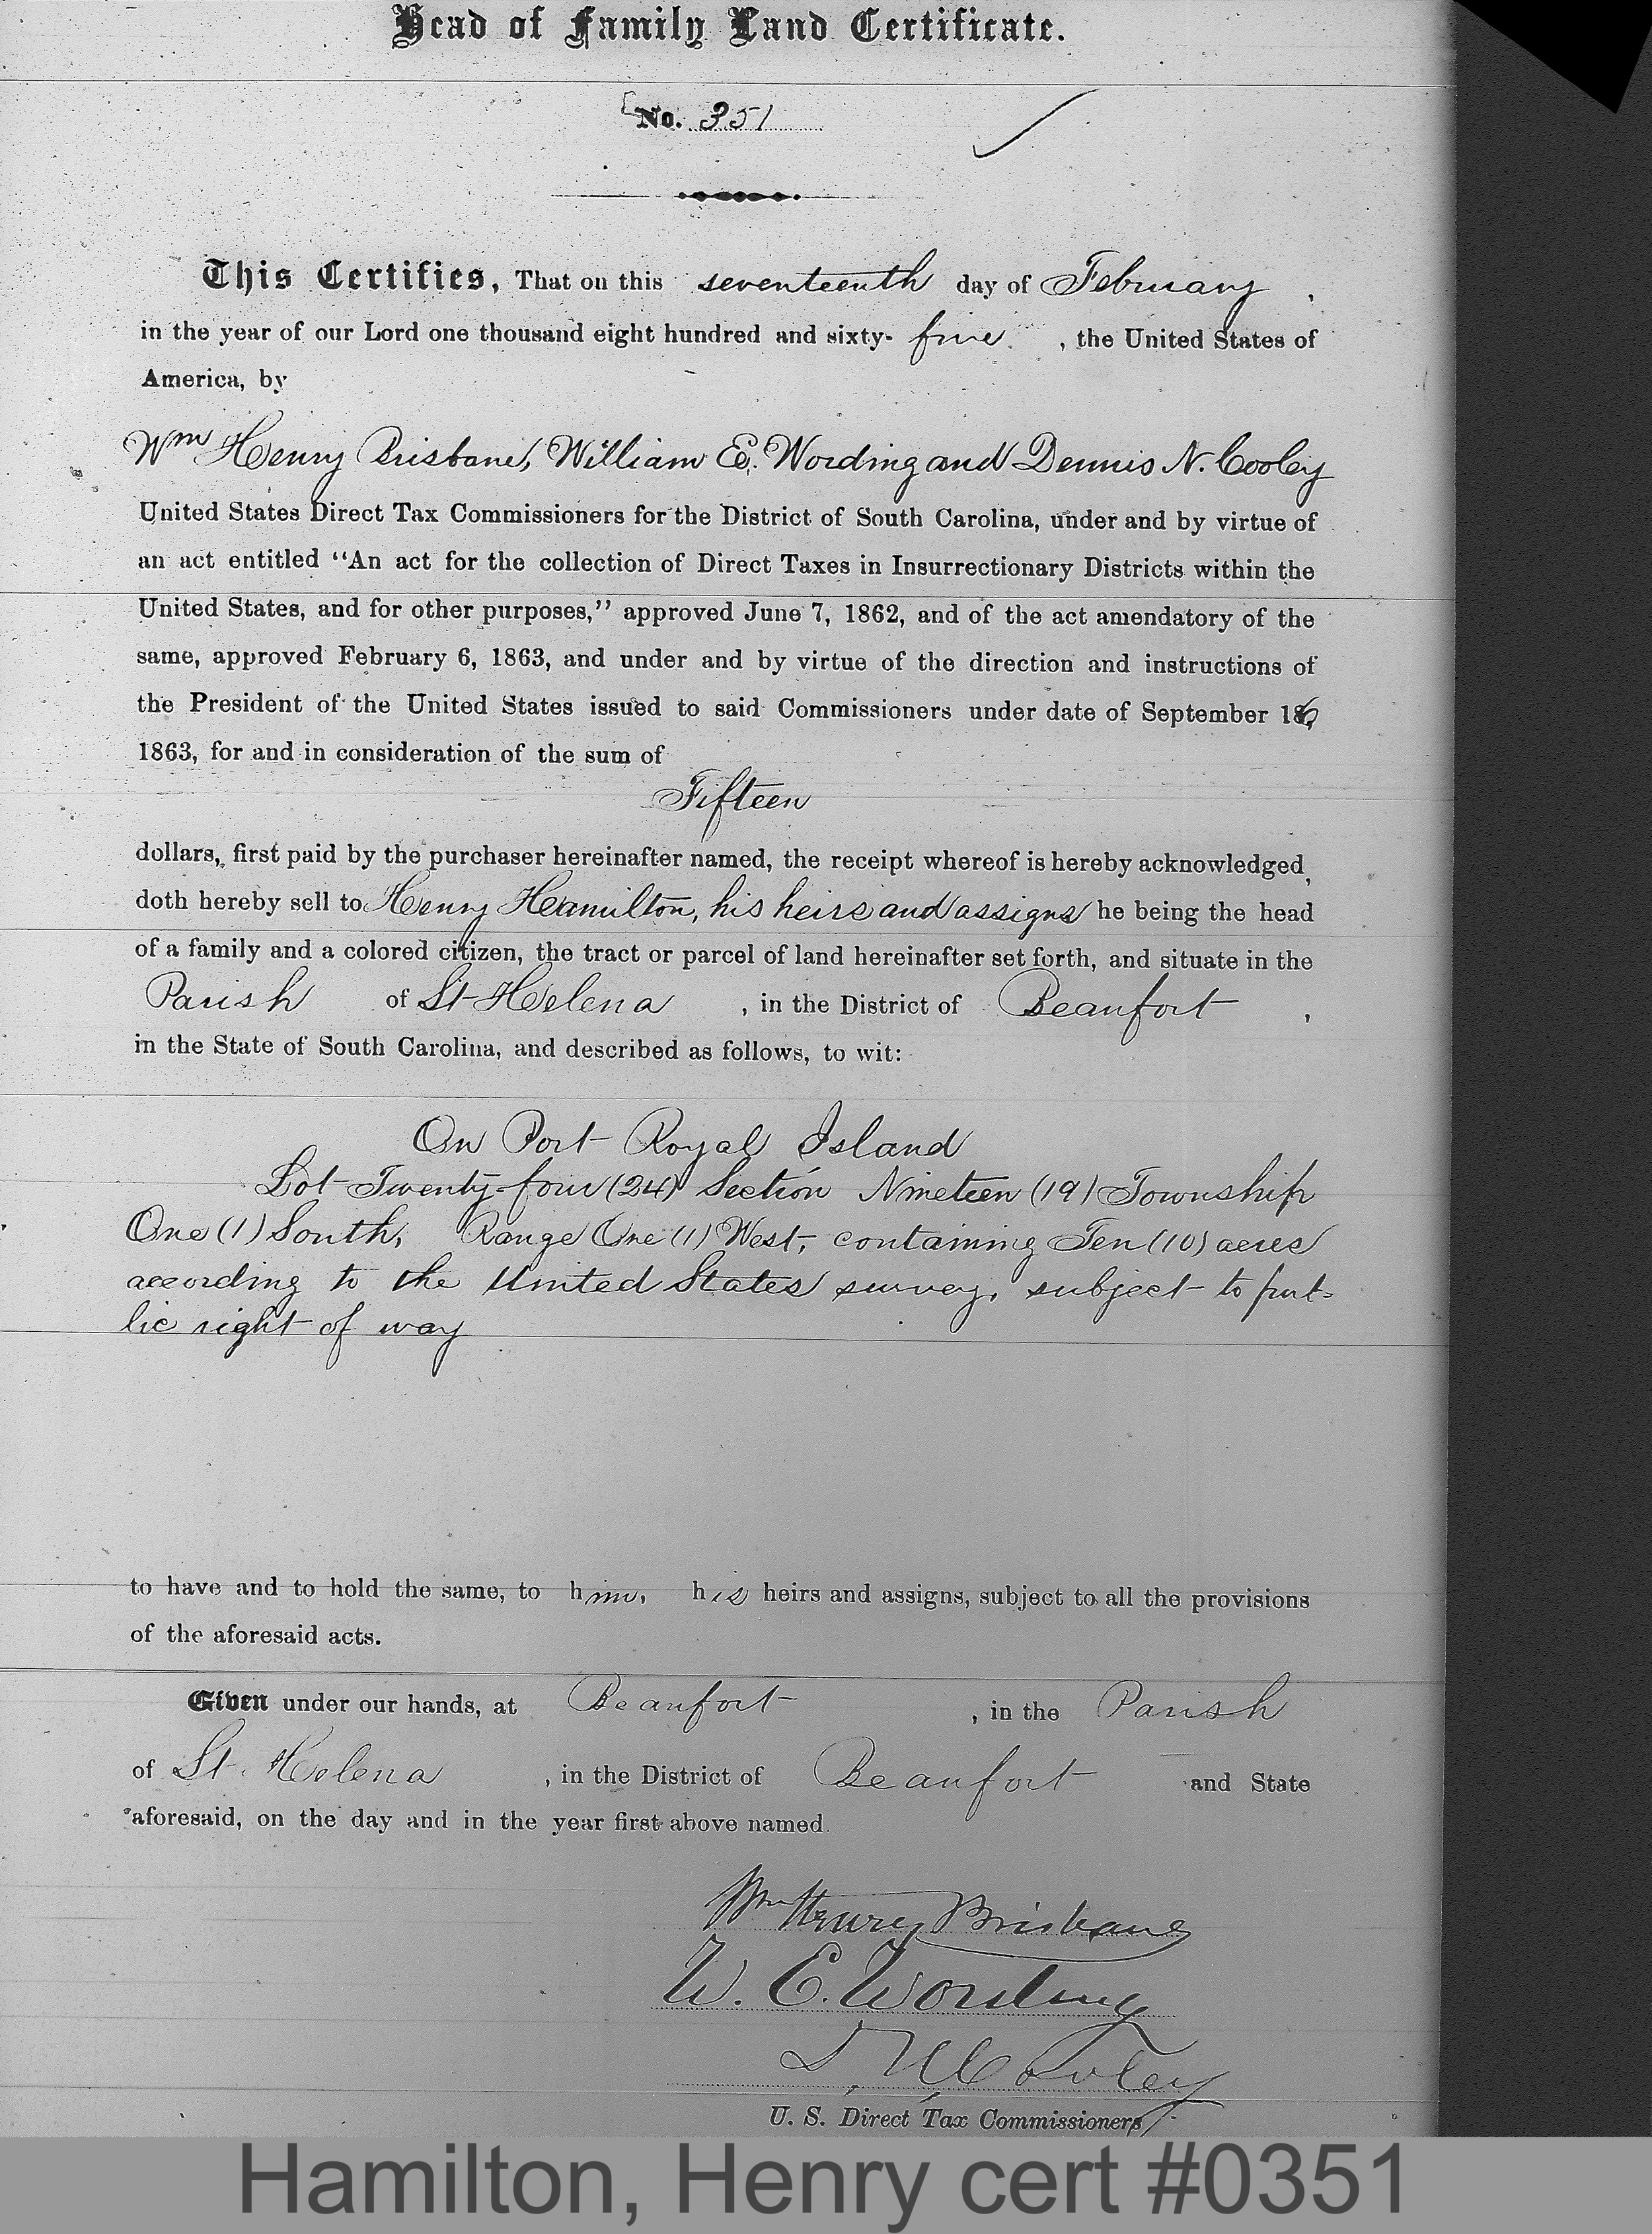 Head of Family Land Certificate.
No. 351
This Certifies, That on this seventeenth day of February,
in the year of our Lord one thousand eight hundred and sixty-five, the United States of
America, by
Wm Henry Brisbane, William E. Wording and Dennis N. Cooley
United States Direct Tax Commissioners for the District of South Carolina, under and by virtue of
an act entitled "An act for the collection of Direct Taxes in Insurrectionary Districts within the
United States, and for other purposes," approved June 7, 1862, and of the act amendatory of the
same, approved February 6, 1863, and under and by virtue of the direction and instructions of
the President of the United States issued to said Commissioners under date of September 16,
1863, for and in consideration of the sum of
Fifteen
dollars, first paid by the purchaser hereinafter named, the receipt whereof is hereby acknowledged,
doth hereby sell to Henry Hamilton, his heirs and assigns he being the head
of a family and a colored citizen, the tract or parcel of land hereinafter set forth, and situate in the
Parish of St Helena, in the District of Beaufort,
in the State of South Carolina, and described as follows, to wit:
On Port Royal Island
Lot Twenty-four (24) Section Nineteen (19) Township
One (1) South, Range One (1) West, containing Ten (10) acres
according to the United States survey, subject to pub-
lic right of way
to have and to hold the same, to him, his heirs and assigns, subject to all the provisions
of the aforesaid acts.
Given under our hands, at Beaufort, in the Parish
of St. Helena, in the District of Beaufort and State
aforesaid, on the day and in the year first above named.
Wm Henry Brisbane
W. E. Wording
D. N. Cooley
U. S. Direct Tax Commissioners
Hamilton, Henry cert #0351